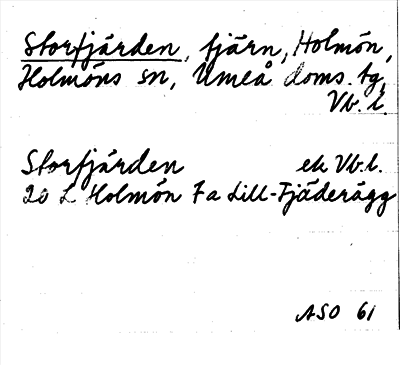 Storfjärden, tjärn, Holmön,
Holmöns sn, Umeå doms. tg,
Vb. l.
Storfjärden ek Vb. l.
20 L Holmön 7a Lill-Fjäderägg
ASO 61